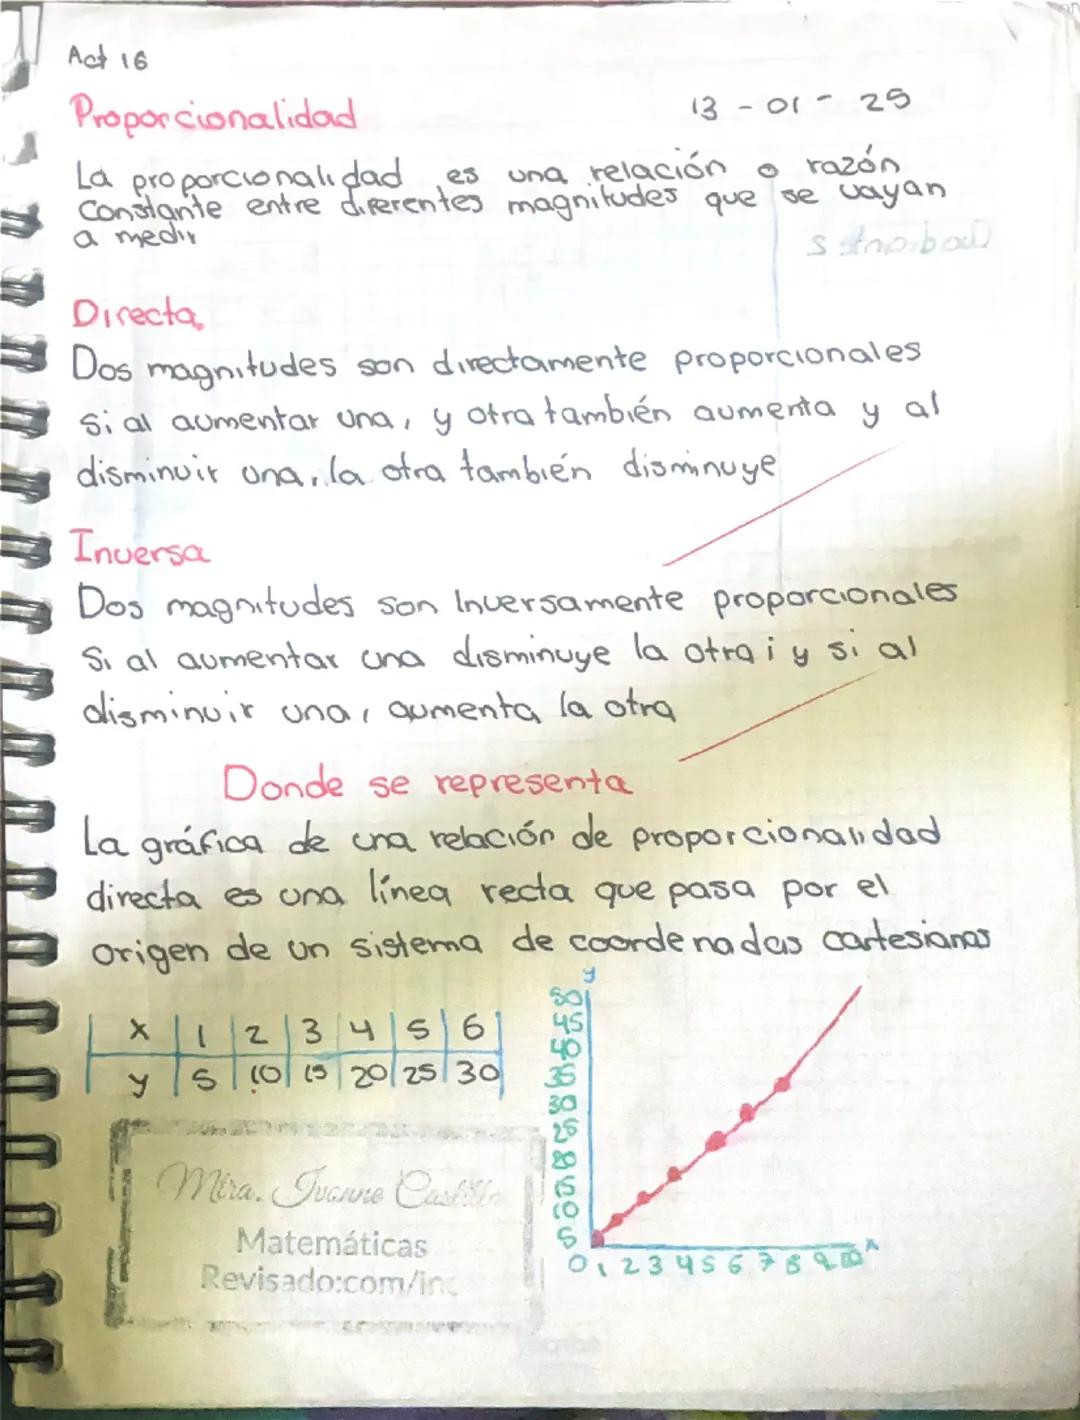 Act 16
Proporcionalidad
13 - 01 - 25
La proporcionalidad es una relación o razón
Constante entre diferentes magnitudes que se vayan
a medir
Directa
Dos magnitudes son directamente proporcionales
Si al aumentar una, y otra también aumenta y al
disminuir una, la otra también disminuye
Inversa
Dos magnitudes son Inversamente proporcionales
Si al aumentar una disminuye la otra i y si al
disminuir una, aumenta la otra
Donde se representa
La gráfica de una relación de proporcionalidad
directa es una línea recta que pasa por el
origen de un sistema de coordenadas cartesianas
x 1 2 3 4 5 6
y 5 10 15 20 25 30
y
50
45
40
35
30
25
20
15
10
5
0 1 2 3 4 5 6 7 8 9 10 x
Mtra. Ivonne
Matemáticas
Revisado:com/inc